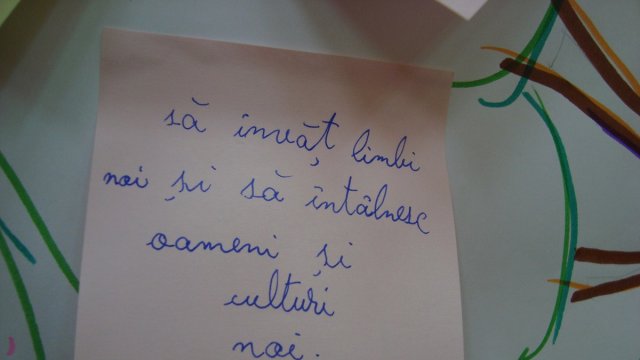 să învăț limbi
noi și să întâlnesc
oameni și
culturi
noi.